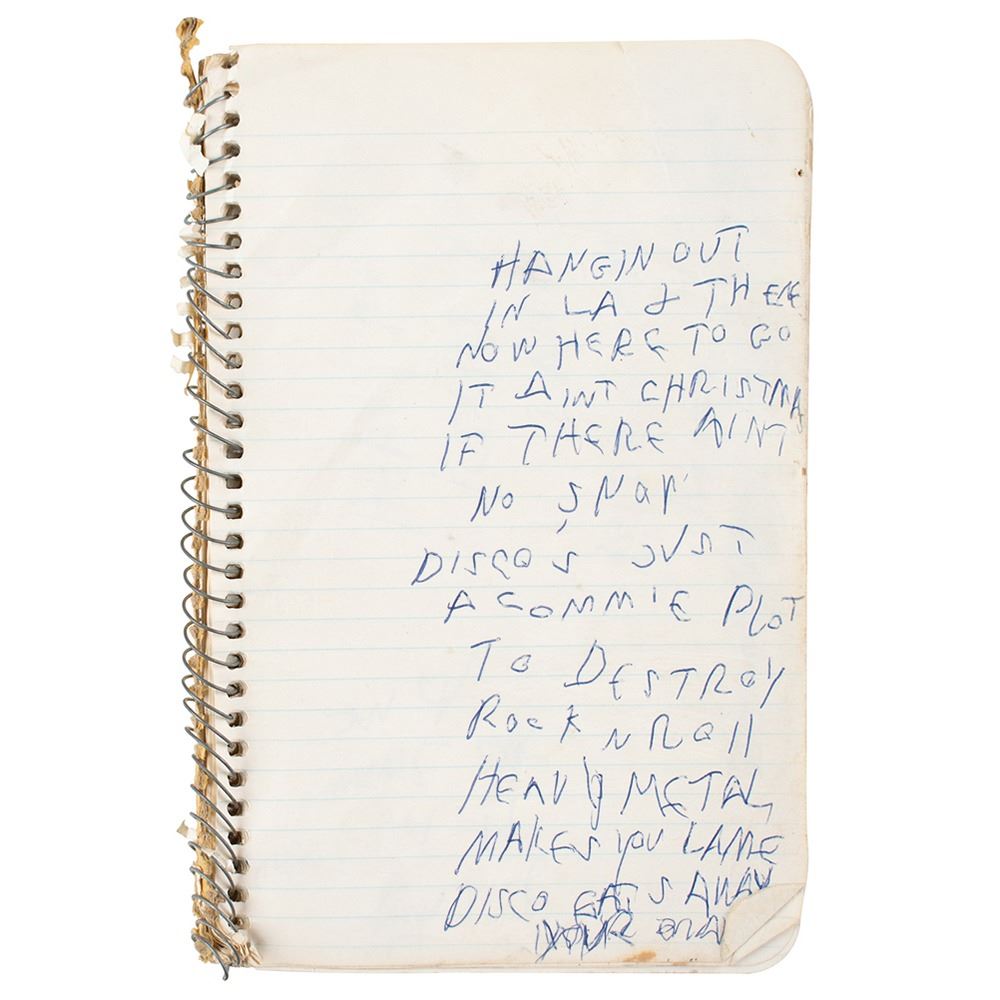 HANGIN OUT
IN LA & THERE
NOWHERE TO GO
IT AINT CHRISTMAS
IF THERE AINT
NO SNOW
DISCO'S JUST
A COMMIE PLOT
TO DESTROY
ROCK N ROll
HEAVY METAL
MAKES YOU LAME
DISCO EATS AWAY
YOUR